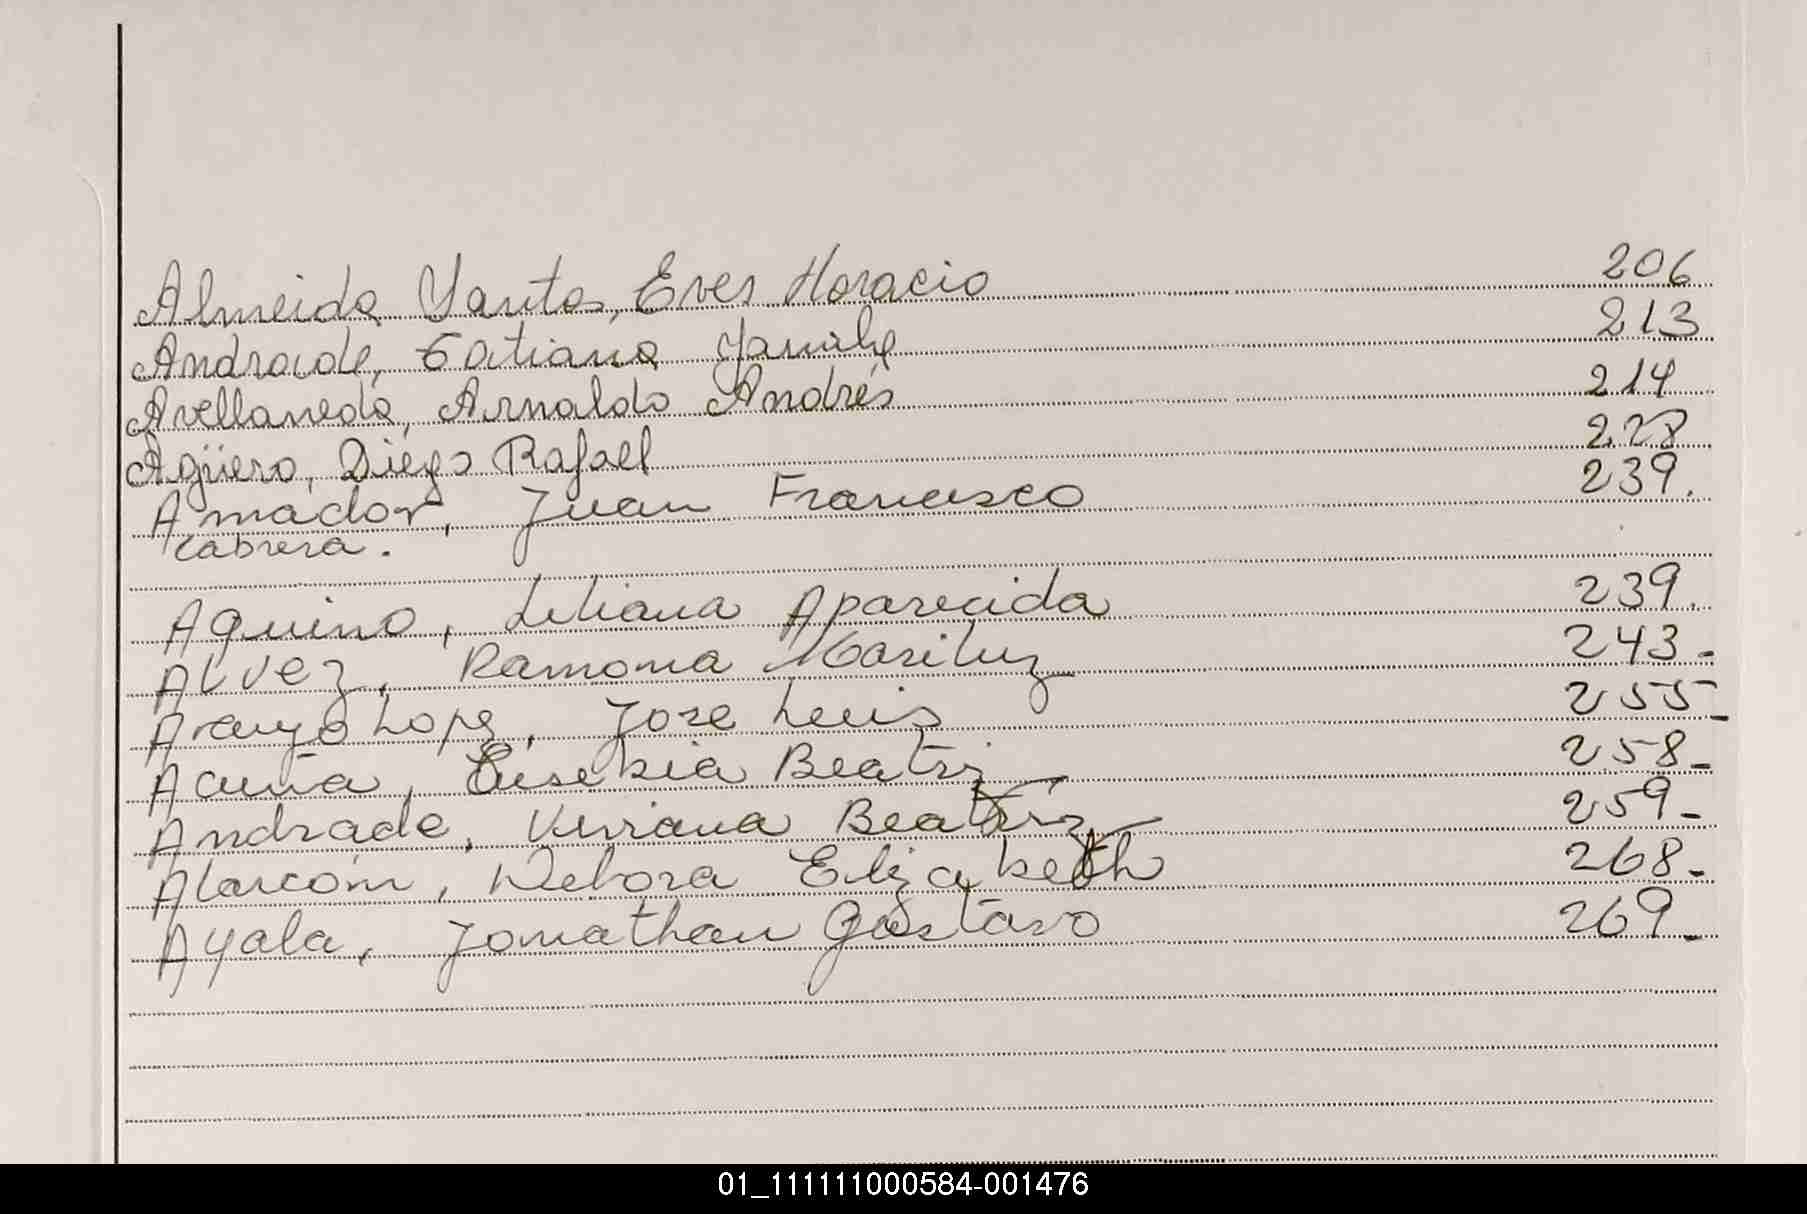 Almeida Santos, Eves Horacio 206
Andrade, Tatiana 213
Avellaneda, Arnaldo Andrés 214
Agüero, Diego Rafael 228
Amador, Juan Francisco 239.
Cabrera.
Aquino, Liliana Aparecida 239.
Alvez, Ramona Mariluz 243-
Araujo Lopez, Jose Luis 255-
Acuña, Eusebia Beatriz 258-
Andrade, Viviana Beatriz 259-
Alarcóm, Debora Elizabeth 268-
Ayala, Jonathan Gustavo 269-
01_111111000584-001476